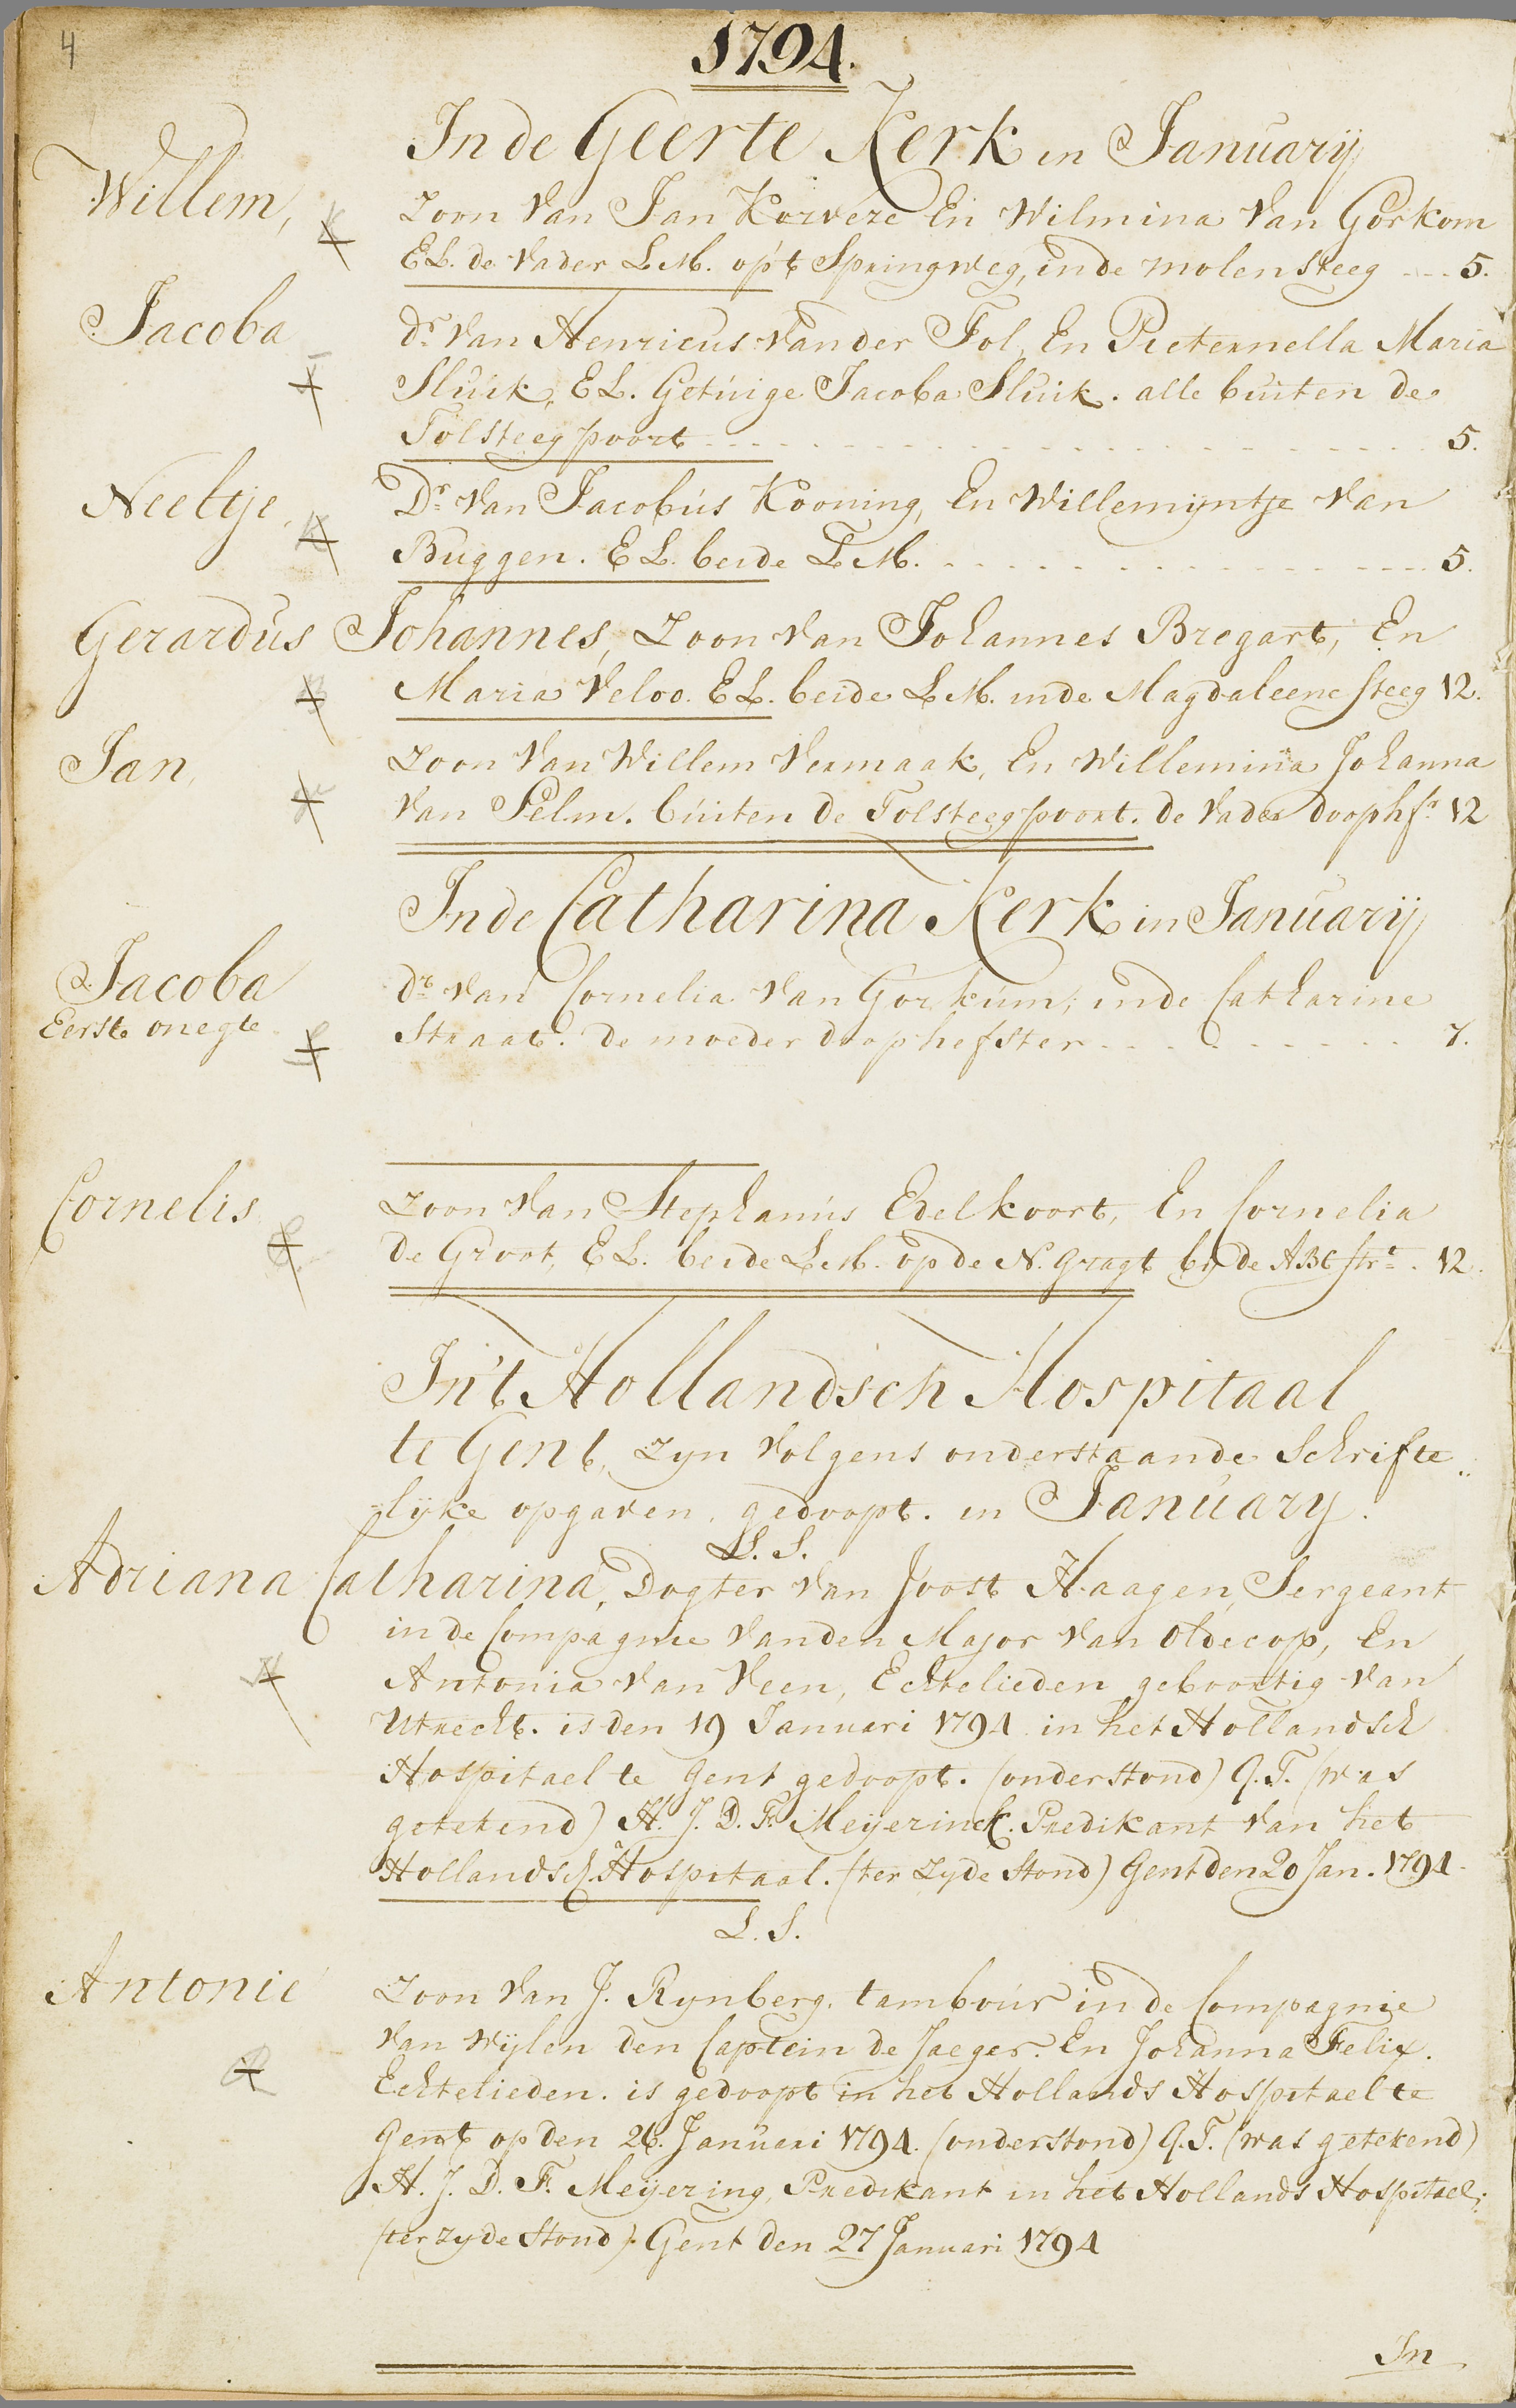 4
1794.
In de Geerte Kerk in Januarij
Willem, Zoon van Jan Korveze En Wilmina van Gorkom
EL. de vader LM. op't Springweg, in de molensteeg --- 5.
Jacoba Dr. van Henricus van der Tol, En Pieternella Maria
Sluik, EL. Getuige Jacoba Sluik. alle buiten de
Tolsteegpoort 5.
Neeltje, Dr. van Jacobus Kooning, En Willemijntje van
Buggen. EL. beide LM. 5.
Gerardus Johannes, Zoon van Johannes Bregart, En
Maria Veloo. EL. beide LM. in de Magdaleene steeg 12.
Jan, Zoon van Willem Vermaak, En Willemina Johanna
van Pelm. buiten de Tolsteegpoort. de vader doophfr. 12
In de Catharina Kerk in Januarij
Jacoba Dr. van Cornelia van Gorkum, in de Catharine
Eerste onegte Straat. de moeder doophefster 7.
Cornelis Zoon van Stephanus Edelkoort, En Cornelia
de Groot, EL. beide LM. op de N. gragt by de ABC strt. 12.
In't Hollandsch Hospitaal
te Gent, zyn volgens onderstaande Schrifte„
=lijke opgaven, gedoopt. in January.
L. S.
Adriana Catharina, Dogter van Joost Haagen, Sergeant
in de Compagnie van den Major van Oldecop, En
Antonia van Veen, Echtelieden geboortig van
Utrecht. is den 19 Januari 1794 in het Hollandsch
Hospitael te Gent gedoopt. (onderstond) Q.T. (was
getekend) H. J. D. F. Meijerinck. Predikant van het
Hollandsch Hospitaal. (ter zyde stond) Gent den 20 Jan. 1794.
L. S.
Antonie Zoon van J. Rynberg, tambour in de Compagnie
van wijlen den Captein de Jaeger. En Johanna Felix.
Echtelieden. is gedoopt in het Hollands Hospitael te
Gent op den 26. Januari 1794. (onderstond) Q.T. (was getekend)
H. J. D. F. Meijering, Predikant in het Hollands Hospitael;
(ter zyde stond). Gent den 27 Januari 1794
In